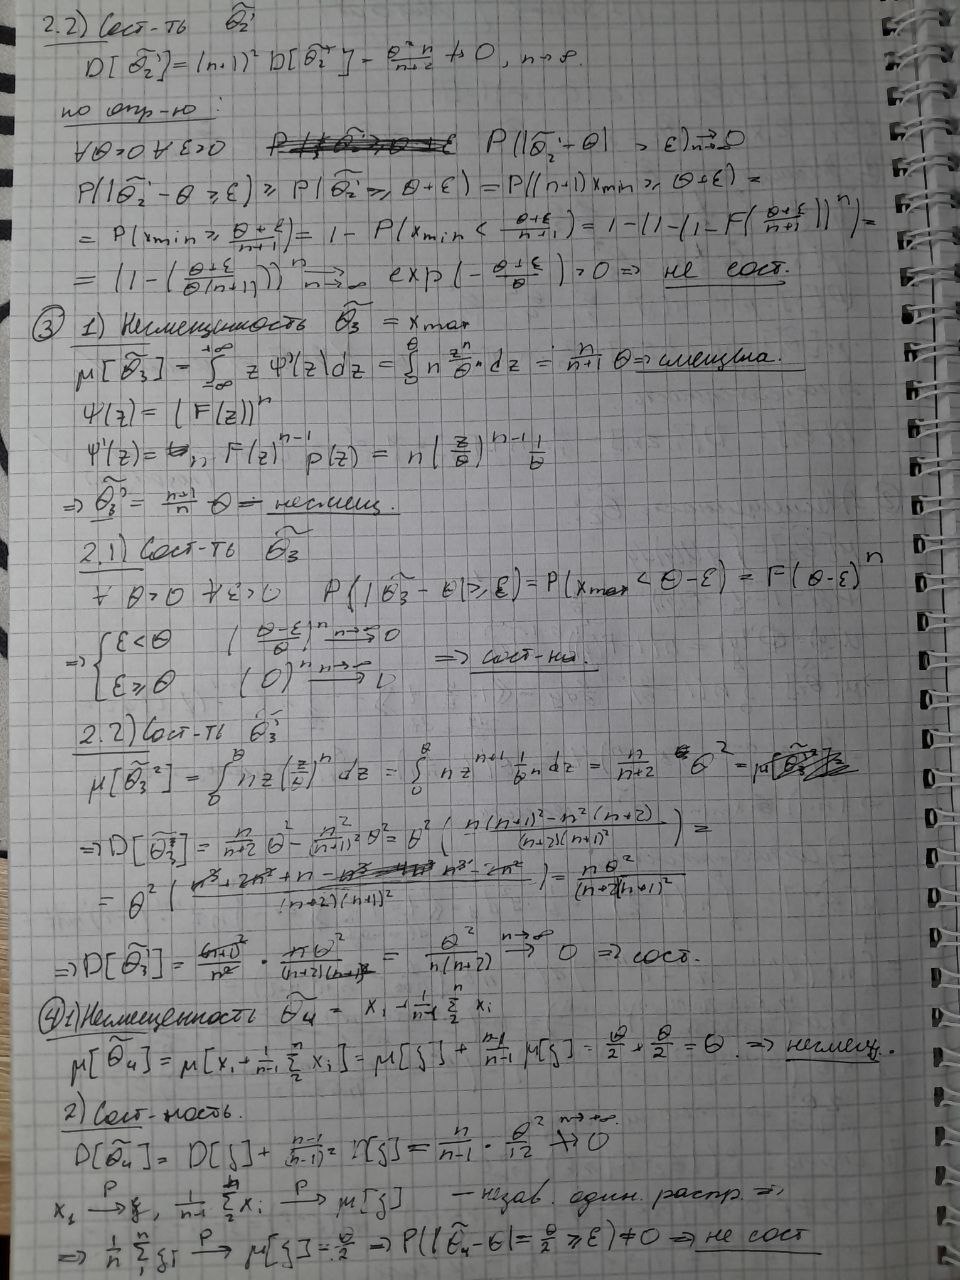 2.2) Сост-ть θ̃₂'
D[θ̃₂'] = (n+1)² D[θ̃₂] = θ²n/(n+2) ↛ 0, n→∞.
по опр-ю:
∀θ>0 ∀ε>0 P(|θ̃₂' - θ| ≥ ε) →(n→∞) 0
P(|θ̃₂' - θ| ≥ ε) ≥ P(θ̃₂' ≥ θ+ε) = P((n+1)x_min ≥ θ+ε) =
= P(x_min ≥ (θ+ε)/(n+1)) = 1 - P(x_min < (θ+ε)/(n+1)) = 1 - (1 - (1 - F((θ+ε)/(n+1)))ⁿ) =
= (1 - ((θ+ε)/(θ(n+1))))ⁿ →(n→∞) exp(-(θ+ε)/θ) > 0 => не сост.
③ 1) Несмещенность θ̃₃ = x_max
μ[θ̃₃] = ∫_{-∞}^{+∞} z Ψ'(z) dz = ∫_0^θ n zⁿ/θⁿ dz = n/(n+1) θ => смещена.
Ψ(z) = (F(z))ⁿ
Ψ'(z) = n F(z)ⁿ⁻¹ p(z) = n (z/θ)ⁿ⁻¹ 1/θ
=> θ̃₃' = (n+1)/n θ - несмещ.
2.1) Сост-ть θ̃₃
∀ θ>0 ∀ε>0 P(|θ̃₃ - θ| ≥ ε) = P(x_max < θ-ε) = F(θ-ε)ⁿ
=> { θ>ε ((θ-ε)/θ)ⁿ →(n→∞) 0
ε≥θ (0)ⁿ →(n→∞) 0 => сост-на.
2.2) Сост-ть θ̃₃'
μ[θ̃₃²] = ∫_0^θ n z (z/θ)ⁿ dz = ∫_0^θ n zⁿ⁺¹ 1/θⁿ dz = n/(n+2) θ²
=> D[θ̃₃] = n/(n+2) θ² - n²/(n+1)² θ² = θ² ( (n(n+1)² - n²(n+2)) / ((n+2)(n+1)²) ) =
= θ² ( (n³+2n²+n - n³ - 2n²) / ((n+2)(n+1)²) ) = nθ²/((n+2)(n+1)²)
=> D[θ̃₃'] = (n+1)²/n² · nθ²/((n+2)(n+1)²) = θ²/(n(n+2)) →(n→∞) 0 => сост.
④ 1) Несмещенность θ̃₄ = x₁ + 1/(n-1) Σ₂ⁿ xᵢ
μ[θ̃₄] = μ[x₁ + 1/(n-1) Σ₂ⁿ xᵢ] = μ[ξ] + (n-1)/(n-1) μ[ξ] = θ/2 + θ/2 = θ => несмещ.
2) Сост-ность.
D[θ̃₄] = D[ξ] + (n-1)/(n-1)² D[ξ] = n/(n-1) · θ²/12 ↛(n→+∞) 0
x₁ →ᴾ ξ, 1/(n-1) Σ₂ⁿ xᵢ →ᴾ μ[ξ] - незав. один. распр. =>
=> 1/n Σ₁ⁿ ξᵢ →ᴾ μ[ξ] = θ/2 => P(|θ̃₄ - θ| = θ/2 ≥ ε) ≠ 0 => не сост